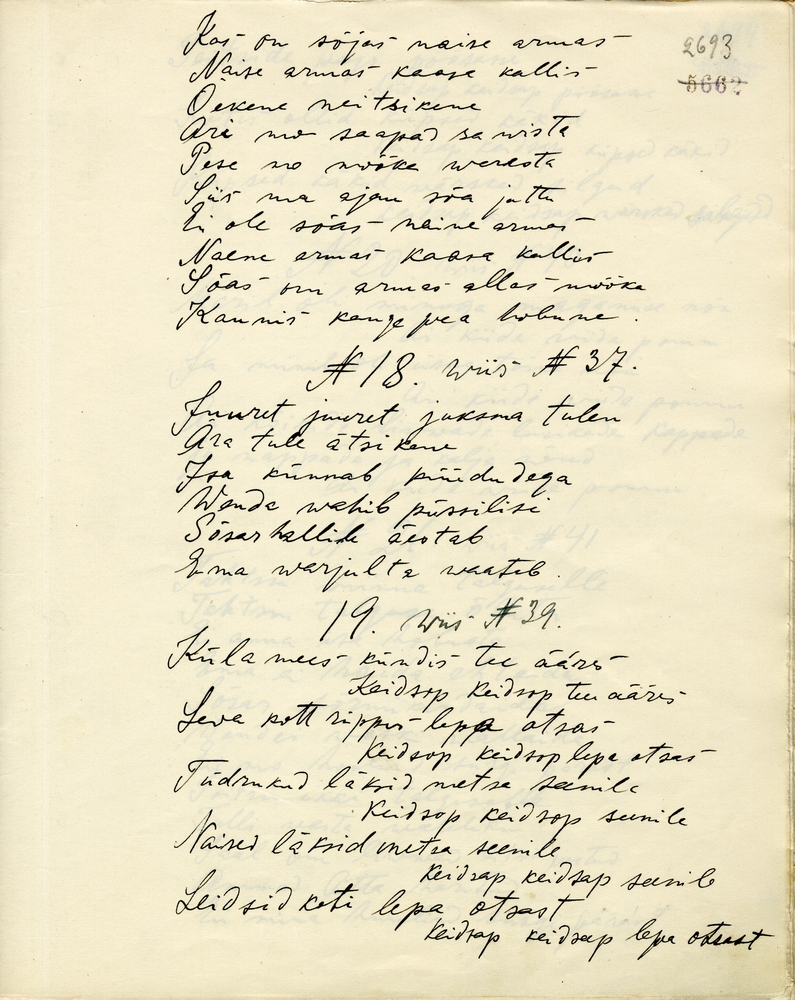 Kas on sõjas naise armas
2693
5662
Naise armas kaasa kallis
Õekene neitsikene
Äri mo saapad sawista
Pese mo mõõka weresta
Siis ma ajan sõa juttu
Ei ole sõas naine armas
Naene armas kaasa kallis
Sõas om armas allas mõõka
Kaunis kange pea hobune.
№ 18. wiis № 37.
Juuret juuret jaksma tulen
Ära tule ätsikene
Isa künnab püüdudega
Wenda wahib püssilisi
Sõsar hallile äiotab
Ema warjulta waatab.
19. wiis № 39.
Küla mees kündis tee ääres
Keidsop keidsop tee ääres
Lewa kott rippus lepa otsas
Keidsop keidsop lepa otsas
Tüdrukud läksid metsa seenile
Keidsop keidsop seenile
Naised läksid metsa seenile
Keidsap keidsap seenile
Leidsid koti lepa otsast
Keidsap keidsap lepa otsast